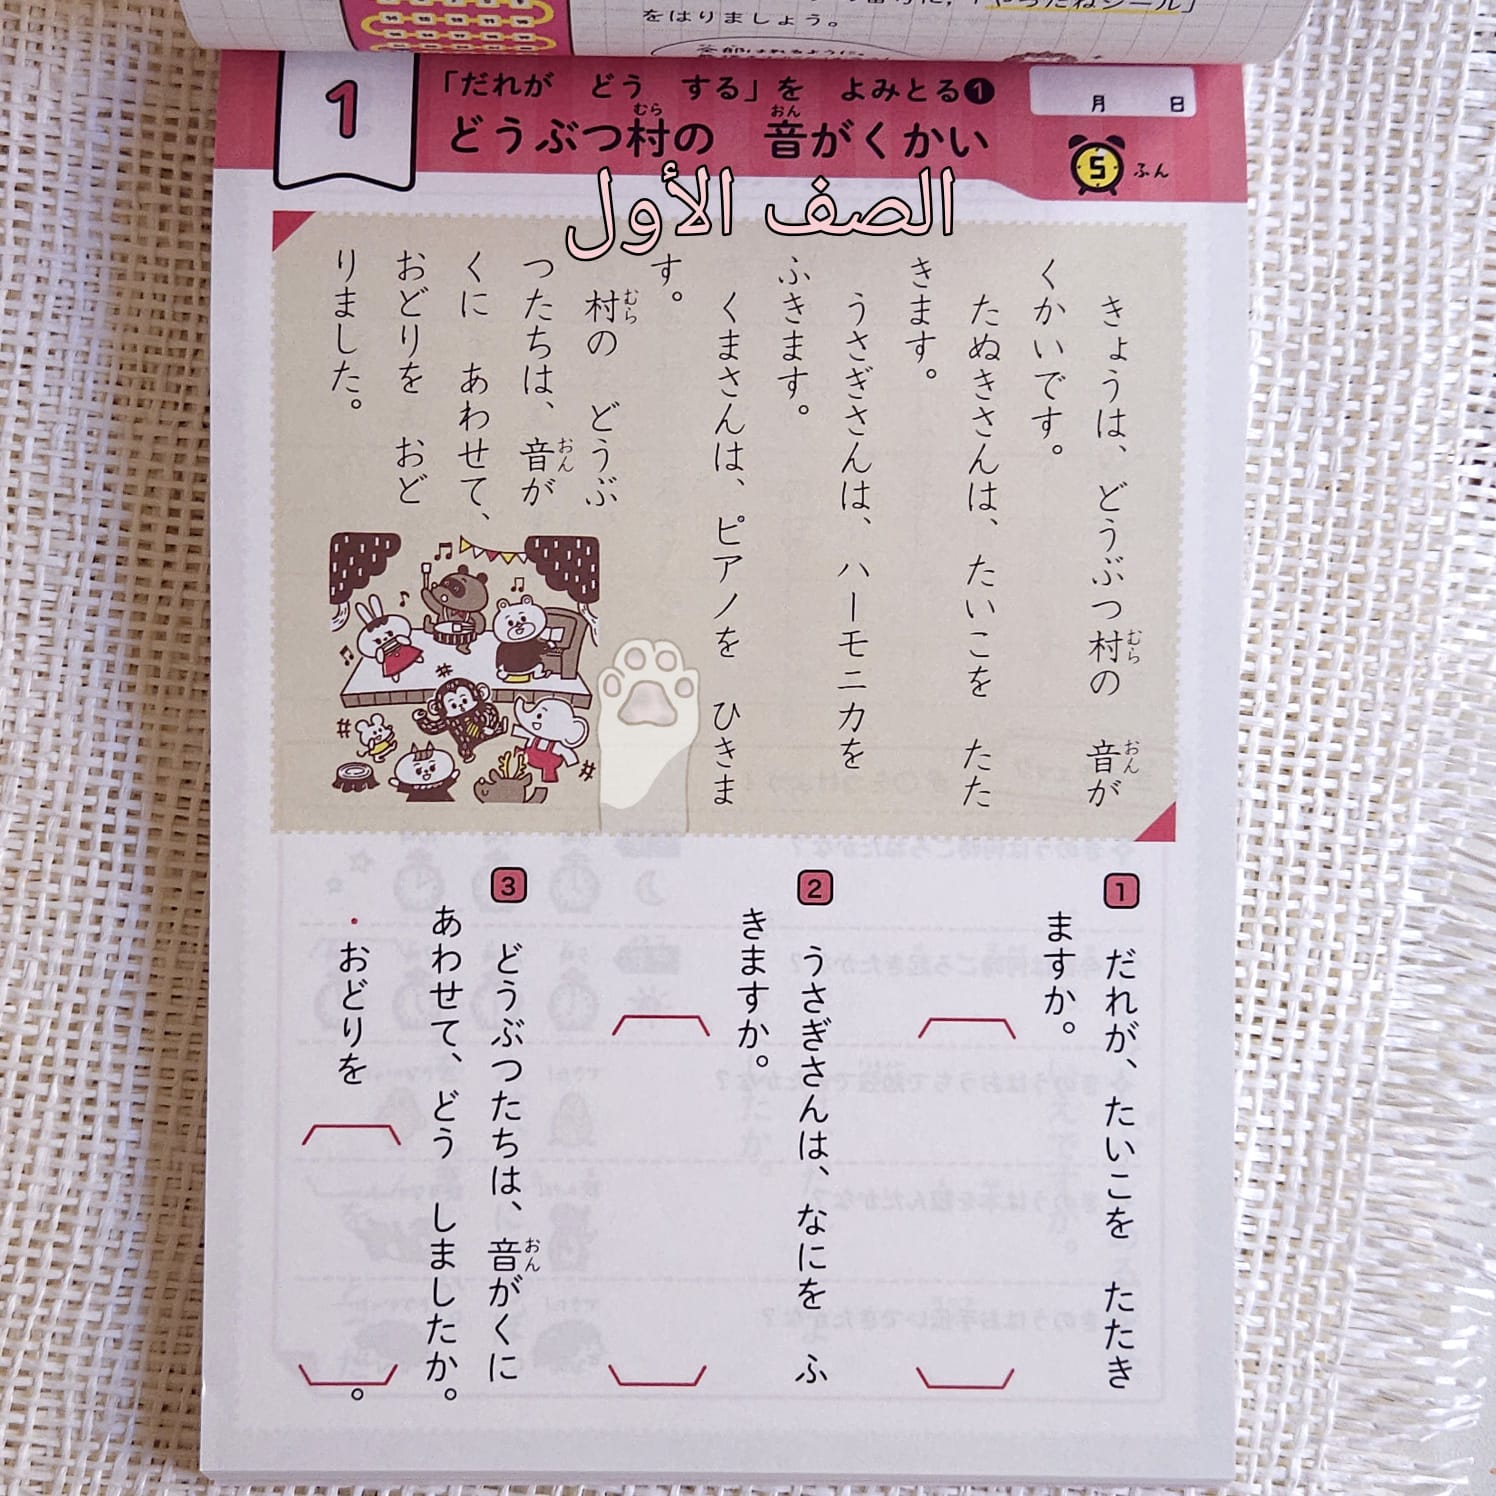 をはりましょう。
1
「だれが どう する」を よみとる❶
どうぶつ村の 音がくかい
むら
おん
月 日
5 ふん
الصف الأول
きょうは、どうぶつ村の 音が
くかいです。
たぬきさんは、たいこを たた
きます。
うさぎさんは、ハーモニカを
ふきます。
くまさんは、ピアノを ひきま
す。
村の どうぶ
つたちは、音が
くに あわせて、
おどりを おど
りました。
1
だれが、たいこを たたき
ますか。
2
うさぎさんは、なにを ふ
きますか。
3
どうぶつたちは、音がくに
あわせて、どう しましたか。
・おどりを 。